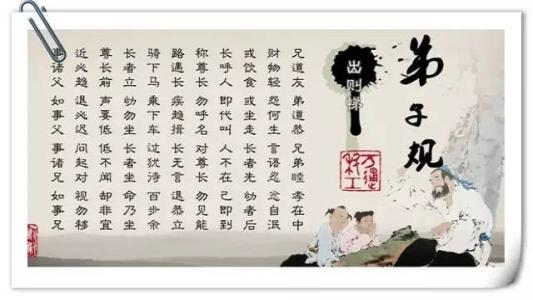 弟子规
出则悌
兄道友 弟道恭 兄弟睦 孝在中
财物轻 怨何生 言语忍 忿自泯
或饮食 或坐走 长者先 幼者后
长呼人 即代叫 人不在 己即到
称尊长 勿呼名 对尊长 勿见能
路遇长 疾趋揖 长无言 退恭立
骑下马 乘下车 过犹待 百步余
长者立 幼勿坐 长者坐 命乃坐
尊长前 声要低 低不闻 却非宜
近必趋 退必迟 问起对 视勿移
事诸父 如事父 事诸兄 如事兄